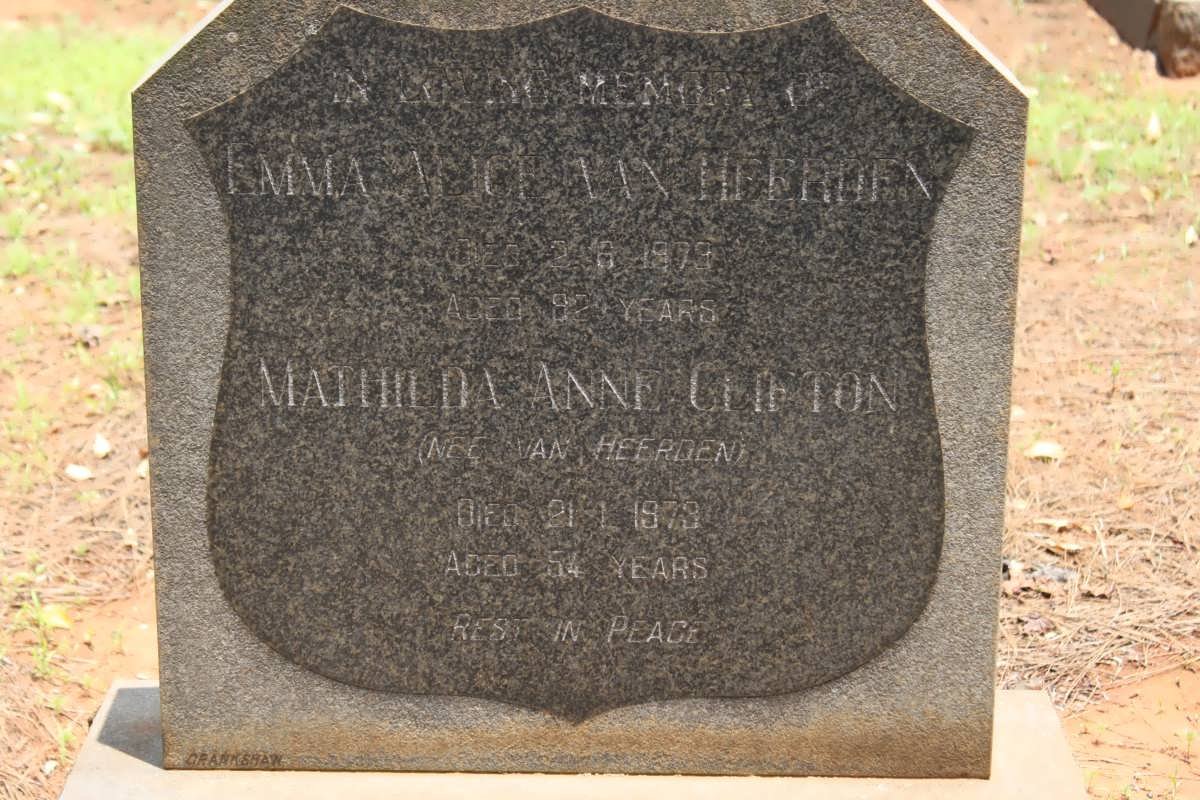 IN LOVING MEMORY OF
EMMA ALICE VAN HEERDEN
DIED 2.6.1973
AGED 82 YEARS
MATHILDA ANNE CLIFTON
(NEE VAN HEERDEN)
DIED 21.1.1973
AGED 54 YEARS
REST IN PEACE
CRANKSHAW